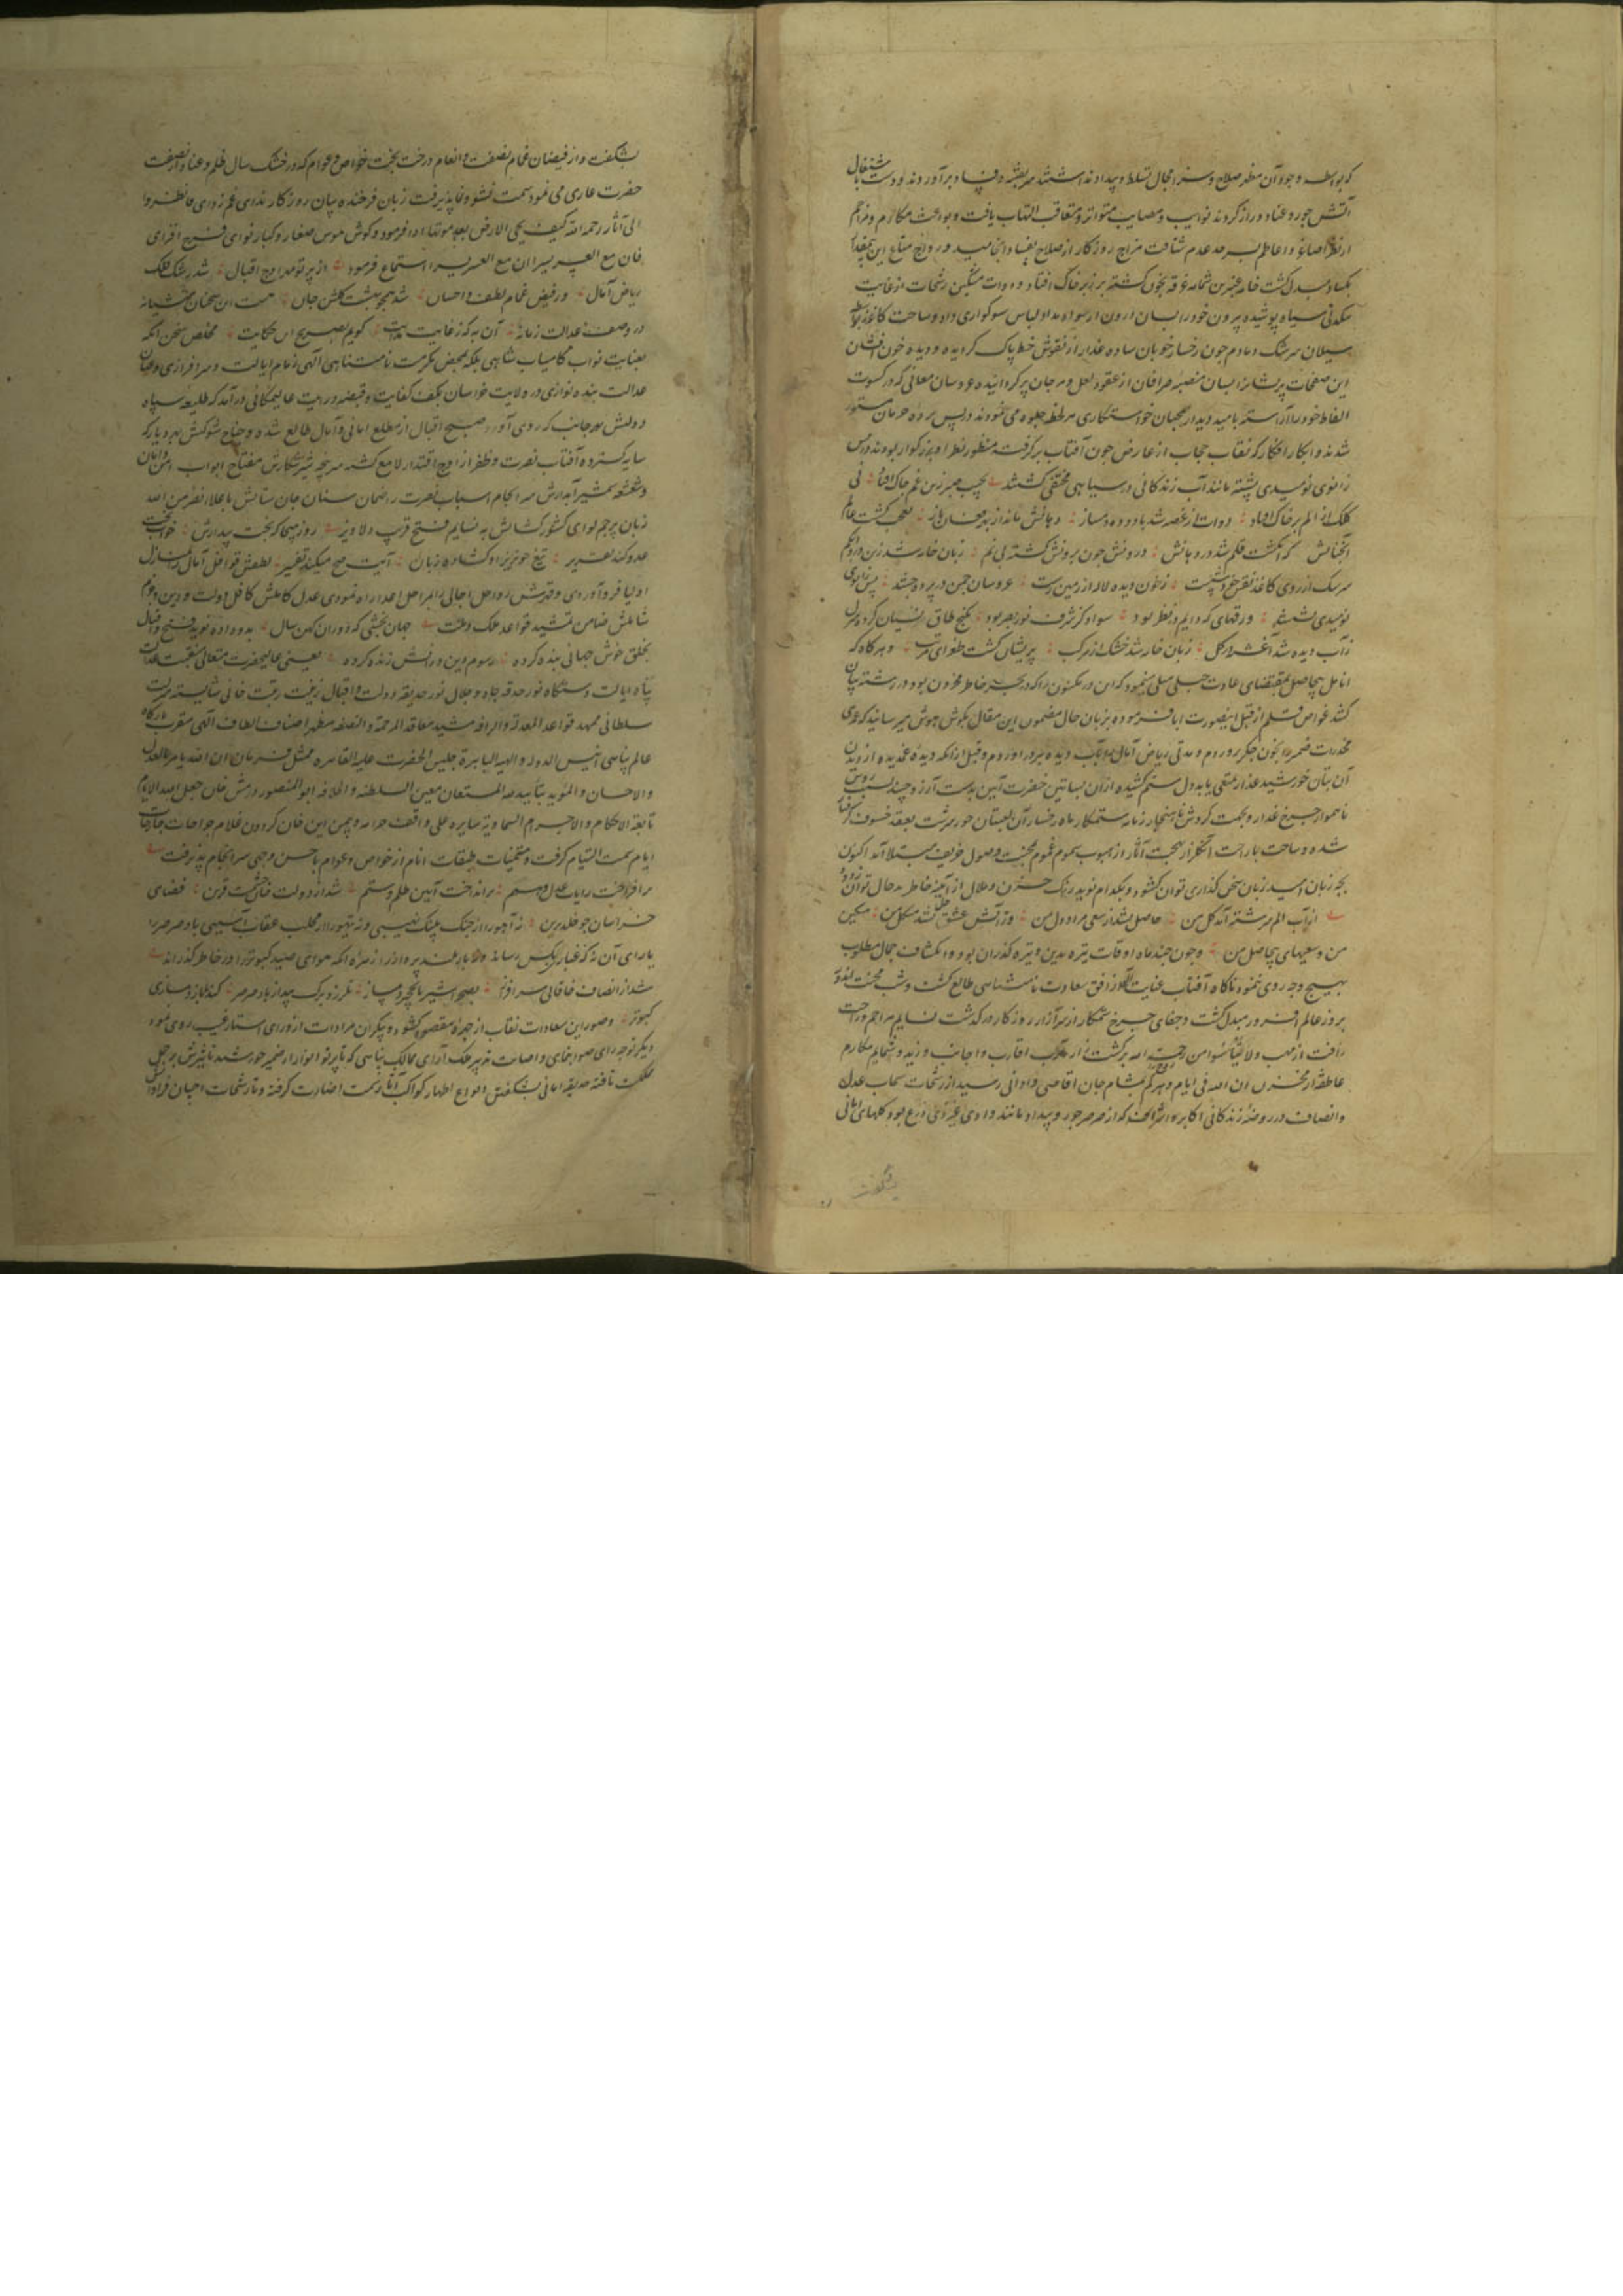 که بواسطه وجود آن مظهر صلاح و سزا مجال تسلط و بیداد نداشتند سر بفتنه و فساد برآوردند و دست باشتغال
آتش جور و عناد دراز کردند نوایب و مصایب متواتر و متعاقب التهاب یافت و بواعث مکارم و مراحم
از نظر اصاغر و اعاظم بسرحد عدم شتافت مزاج روزگار از صلاح بفساد انجامید و رواج متاع این
بکساد مبدل گشت خامه عنبرین شمامه غرقه بخون گشته بر زبر خاک افتاد و دوات مشکین رشحات از غایت
سیاه پوشیده بیرون خود را بسان درون از سواد مداد لباس سوگواری داد و ساحت کاغذ بواسطه
سیلان سرشک دمادم چون رخسار خوبان ساده عذار از نقوش خط پاک گردیده و دیده خون افشان
این صفحات پریشان را بسان منصبه صرافان از عقود لعل و مرجان پر گردانیده عروسان معانی که در کسوت
الفاظ خود را آراسته بامید دیدار محبان خواستگاری هر لحظه جلوه می نمودند در پس پرده حرمان مستور
شدند و ابکار افکار که نقاب حجاب از عارض چون آفتاب برگرفته منظور نظر او بزرگوار بودند در پس
زانوی نومیدی نشسته مانند آب زندگانی در سیاهی مختفی گشتند بجیب صبر زین غم چاک افتاد نی
کلک از الم بر خاک افتاد دوات از غصه شد با دوده دمساز دهانش ماند از بهر فغان باز تعجب گشت عالم
آنچنانش که انگشت قلم شد در دهانش درونش چون برونش گشته بی نم زبان خار شد زین درد و غم
سرشک از روی کاغذ نقش خود شست ز خون دیده لاله از زمین رست عروسان چمن در پرده جستند پس زانوی
نومیدی نشستند ورقهای که دایم در نظر بود سواد کز شرف نور بصر بود بکنج طاق نسیان کرده منزل
ز آب دیده شد آغشته در گل زبان خار شد خشک از مرکب پریشان گشت طغرای مرتب و هرگاه که
انامل بیحاصل بمقتضای عادت جبلی میلی مینمود که این در مکنون را که در بحر خاطر مخزون بود در رشته بیان
کشد غواص قلم از قبول اینصورت ابا فرموده بزبان حال مضمون این مقال بگوش هوش میرسانید که عمری
مخدرات ضمیر را بخون جگر پروردم و مدتی ریاض آمال را بآب دیده ببر آوردم و قبل از آنکه دیده غمدیده از دیدن
آن بتان خورشید عذار تمتعی یابد و دل ستم کشیده از آن بساتین خضرت آیین بدست آرزو چیند بسبب روش
ناهموار چرخ غدار و بجهت گردش ناهنجار زمانه ستمکار ماه رخسار آن لعبتان حور سرشت بعقده خسوف گرفتار
شده و ساحت با راحت آن گلزار بهجت آثار از هبوب سموم غموم محنت وصول خریف مبتلا آمد اکنون
بچه زبان امید زبان سخن گذاری توان گشود و بکدام نوید زنگ حزن و ملال از آیینه خاطر بدحال توان زدود
از آب الم سرشته آمد گل من حاصل نشد از سعی مراد دل من وز آتش عشق حل نشد مشکل من مسکین
من و سعیهای بیحاصل من و چون چند ماه اوقات تیره بدین وتیره گذران بود و انکشاف جمال مطلوب
بهیچ وجه روی ننمود ناگاه آفتاب عنایت اله از افق سعادت نامتناهی طالع گشت و شب محنت اندود
بروز عالم افروز مبدل گشت و جفای چرخ ستمکار از سر آزار روزگار درگذشت نسایم مراحم و راحت
رأفت از مهب ولا تیأسوا من رحمت الله بر گشت زار اقارب و اجانب وزید و شمایم مکارم
عاطفت از مخزن ان الله فی ایام دهرکم بمشام جان اقاصی و ادانی رسید از رشحات سحاب عدل
و انصاف در روضه زندگانی اکابر و اشراف که از صرصر جور و بیداد مانند وادی غیر ذی زرع بود گلهای امانی
بشکفت
بشکفت و از فیضان غمام نصفت و انعام درخت بخت خواص و عوام که در خشک سال ظلم و عناد از صفت
خضرت عاری می نمود سمت نشو و نما پذیرفت زبان فرخنده بیان روزگار ندای غم زدای فانظروا
الی آثار رحمة الله کیف یحی الارض بعد موتها ادا فرمود و گوش هوش صغار و کبار نوای فرح افزای
فان مع العسر یسرا ان مع العسر یسرا استماع فرمود از پرتو مه اوج اقبال شد رشک فلک
ریاض آمال وز فیض غمام لطف و احسان شد همچو بهشت گلشن جان هست این سخنان منشیانه
در وصف عدالت زمانه آن به که ز غایت بدایت گویم بصریح این حکایت مخلص سخن آنکه
بعنایت نواب کامیاب شاهی بلکه بمحض مکرمت نامتناهی الهی زمام ایالت و سرافرازی و عنان
عدالت بنده نوازی در ولایت خراسان بکف کفایت و قبضه درایت عالیمکانی درآمد که طلیعه سپاه
دولتش بهر جانب که روی آورد صبح اقبال از مطلع امانی و آمال طالع شده و جناح شوکتش بهر دیار که
سایه گسترده آفتاب نصرت و ظفر از اوج اقتدار لامع گشته سر پنجه شیر شکارش مفتاح ابواب امن و امان
و شعشعه شمشیر آبدارش سرانجام اسباب نصرت را ضمان سنان جان ستانش باعلاء نصر من الله
زبان پرچم لوای کشورگشایش به نسایم فتح قریب دلاویز روز هیجا که بخت بیدارش خواب
عدو کند تعبیر تیغ خونریز او گشاده زبان آیت فتح میکند تفسیر لطفش قوافل آمال را بمنازل
اولیا فرود آوردی و قهرش رواحل اجالی را بمراحل اعدا راه نمودی عدل کاملش کافل دولت و دین و عزم
شاملش ضامن تمشید قواعد ملک و ملت جهان بخشی که دوران کهن سال بدو داده نوید فتح و اقبال
بخلق خوش جهانی بنده کرده رسوم دین و دانش زنده کرده یعنی عالیحضرت متعالی منقبت عدالت
پناه ایالت دستگاه نور حدقه جاه و جلال نور حدیقه دولت و اقبال زینت رتبت خانی شایسته مرتبت
سلطانی ممهد قواعد المعدلة و الرأفه مشید معاقد المرحمة و النصفه مظهر اصناف الطاف الهی مقرب بارگاه
عالم پناهی انیس الدولة البهیة الباهرة جلیس الحضرت العلیه القاهره ممثل فرمان ان الله یامر بالعدل
و الاحسان و المؤید بتأیید الله المستعان معین السلطنه و الخلافه ابو المنصور درمش خان جعل الله الایام
تابعة الاحکام و الاجرام السماویة سایره علی
ایام سمت التیام گرفت و متمنیات طبقات انام از خواص و عوام باحسن وجهی سرانجام پذیرفت
برافراخت رایات عدل و کرم برانداخت آیین ظلم و ستم شد از دولت خان حشمت قرین فضای
خراسان چو خلد برین نه آهو را از چنگ پلنگ نهیبی و نه تیهو را از مخلب عقاب آسیبی باد صرصر را
یارای آن نه که غبار بکس رساند و باز بلند پرواز را زهره آنکه هوای صید کبوتر را در خاطر گذراند
شد از انصاف خاقانی سرافراز بصحرا شیر با نخجیر دمساز نلرزد برگ بید از باد صرصر کند شهباز دمسازی
کبوتر و صور این سعادات نقاب از چهره مقصود گشوده پیکران مرادات از ورای استار غیب روی نمود
دیگر توجه رای صوابنمای و اصابت تدبیر ملک آرای ممالک پناهی که تا پرتو انوار از ضمیر خورشید تاثیرش بر
مملکت تافته حدیقه امانی بشکفتن انواع ازهار کواکب آثار سمت نضارت گرفته و تا رشحات احسان